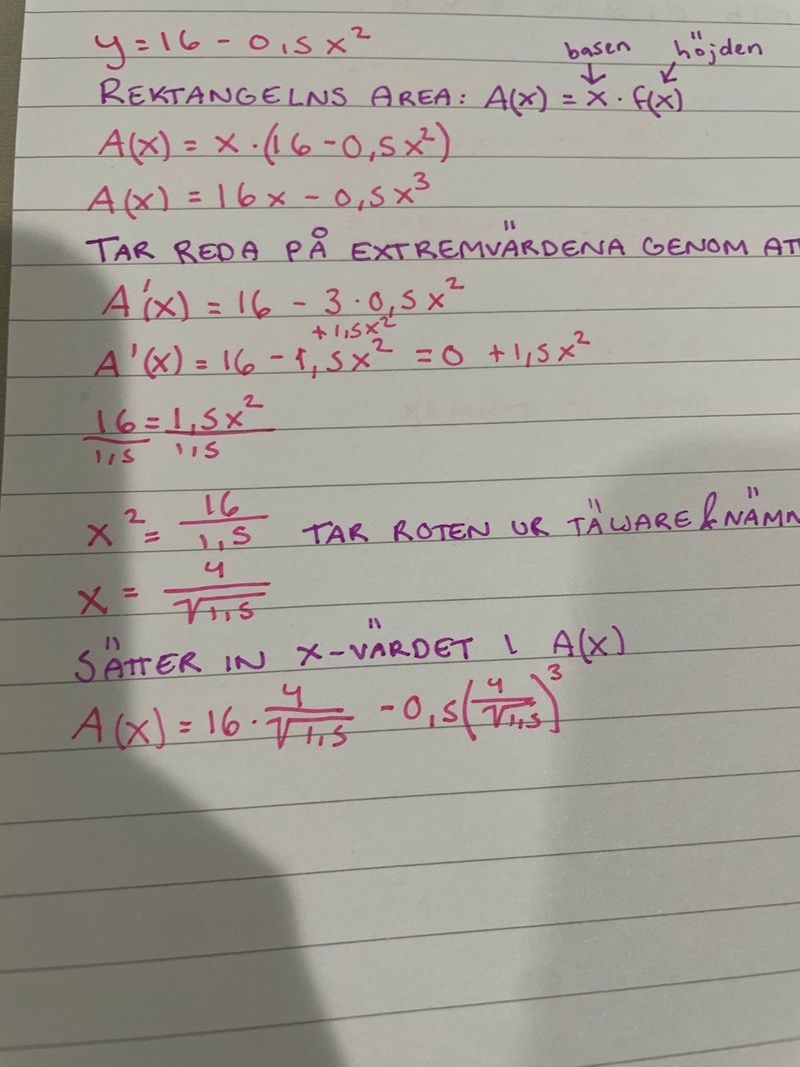 y = 16 - 0,5x²
basen höjden
REKTANGELNS AREA: A(x) = x · f(x)
A(x) = x · (16 - 0,5x²)
A(x) = 16x - 0,5x³
TAR REDA PÅ EXTREMVÄRDENA GENOM AT
A'(x) = 16 - 3 · 0,5x²
+1,5x²
A'(x) = 16 - 1,5x² = 0 +1,5x²
16 = 1,5x²
1,5 1,5
x² = 16/1,5 TAR ROTEN UR TÄLJARE & NÄMN
x = 4/√1,5
SÄTTER IN X-VÄRDET I A(x)
A(x) = 16 · 4/√1,5 - 0,5(4/√1,5)³